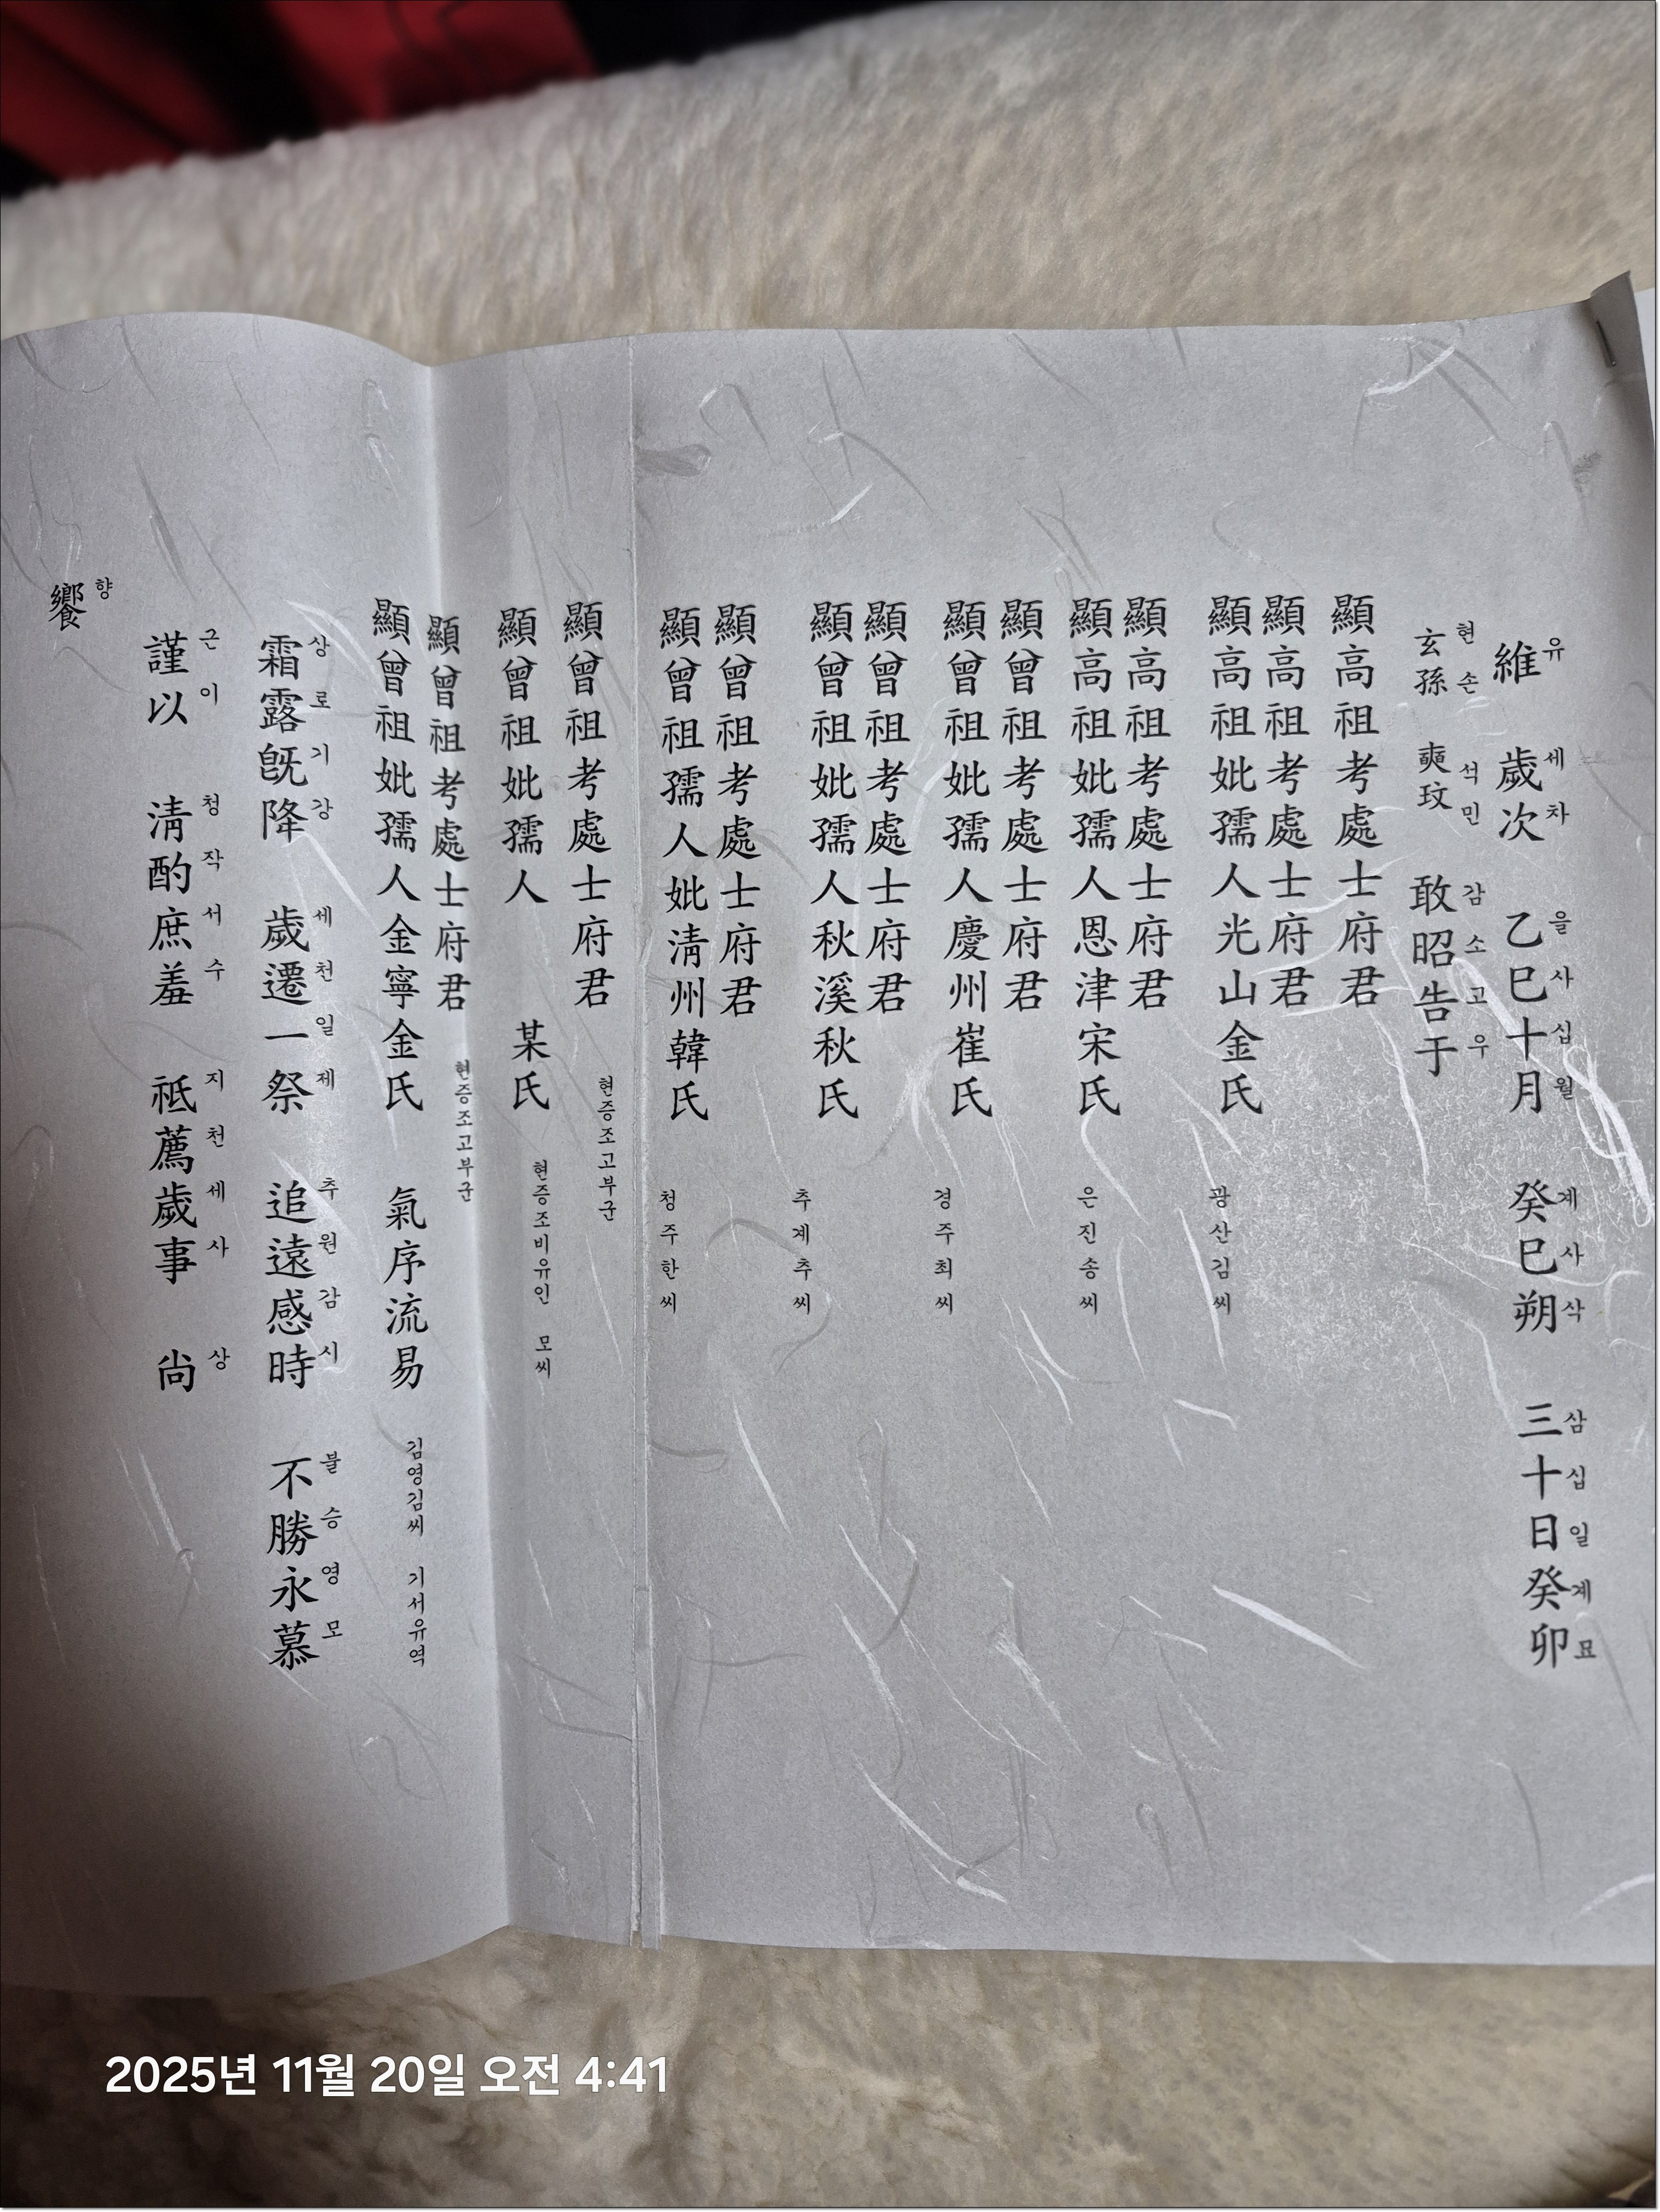 維 歲次 乙巳十月 癸巳朔 三十日癸卯
유 세차 을사십월 계사삭 삼십일계묘
玄孫 奭玟 敢昭告于
현손 석민 감소고우
顯高祖考處士府君
顯高祖考處士府君
顯高祖妣孺人光山金氏
광산김씨
顯高祖考處士府君
顯高祖妣孺人恩津宋氏
은진송씨
顯曾祖考處士府君
顯曾祖妣孺人慶州崔氏
경주최씨
顯曾祖考處士府君
顯曾祖妣孺人秋溪秋氏
추계추씨
顯曾祖考處士府君
顯曾祖孺人妣淸州韓氏
청주한씨
顯曾祖考處士府君
현증조고부군
顯曾祖妣孺人 某氏
현증조비유인 모씨
顯曾祖考處士府君
현증조고부군
顯曾祖妣孺人金寧金氏 氣序流易
김영김씨 기서유역
霜露旣降 歲遷一祭 追遠感時 不勝永慕
상로기강 세천일제 추원감시 불승영모
謹以 淸酌庶羞 祗薦歲事 尙
근이 청작서수 지천세사 상
饗
향
2025년 11월 20일 오전 4:41